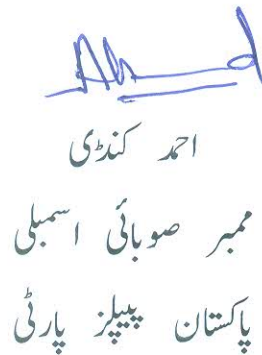 احمد کنڈی
ممبر صوبائی اسمبلی
پاکستان پیپلز پارٹی